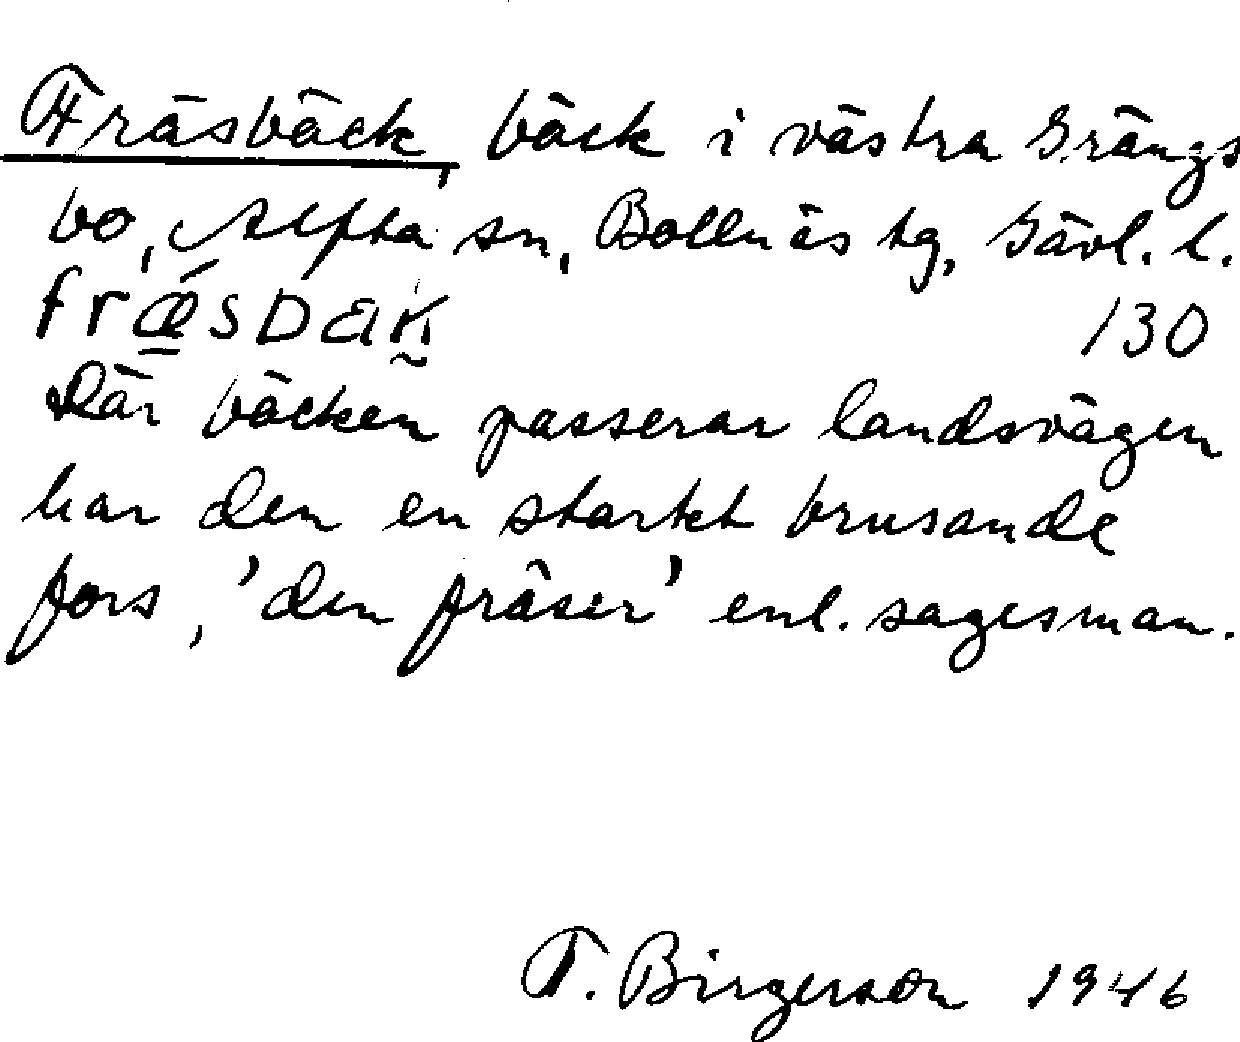 Fräsbäck, bäck i västra Grängs
bo, Alfta sn, Bollnäs tg, Gävl. l.
130
Där bäcken passerar landsvägen
har den en starkt brusande
fors, 'den fräser' enl. sagesman.
T. Birgerson 1946